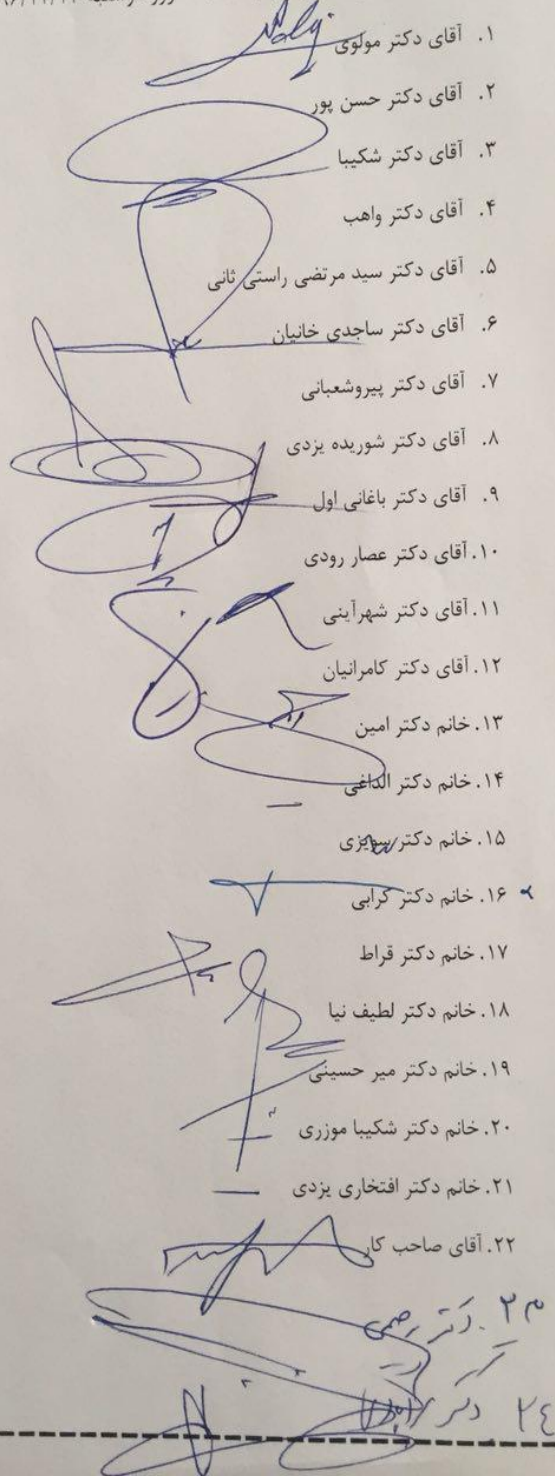 ۱. آقای دکتر مولوی
۲. آقای دکتر حسن پور
۳. آقای دکتر شکیبا
۴. آقای دکتر واهب
۵. آقای دکتر سید مرتضی راستی ثانی
۶. آقای دکتر ساجدی خانیان
۷. آقای دکتر پیروشعبانی
۸. آقای دکتر شوریده یزدی
۹. آقای دکتر باغانی اول
۱۰. آقای دکتر عصار رودی
۱۱. آقای دکتر شهرآینی
۱۲. آقای دکتر کامرانیان
۱۳. خانم دکتر امین
۱۴. خانم دکتر الداغی
۱۵. خانم دکتر
۱۶. خانم دکتر کرابی
۱۷. خانم دکتر قراط
۱۸. خانم دکتر لطیف نیا
۱۹. خانم دکتر میر حسینی
۲۰. خانم دکتر شکیبا موزری
۲۱. خانم دکتر افتخاری یزدی
۲۲. آقای صاحب کار
دکتر
۲۴ دکتر